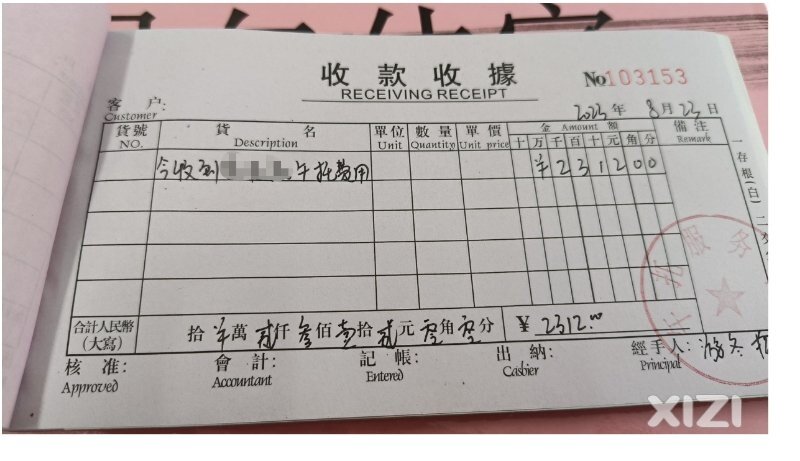 收款收據
RECEIVING RECEIPT
No 103153
客 户:
Customer
2023年 8月23日
貨號 貨 名 單位 數量 單價 金 Amount 額 備注
NO. Description Unit Quantity Unit price 十 万 千 百 十 元 角 分 Remark
今收到 午托费用 ¥ 2 3 1 2 0 0
合計人民幣 拾 ¥萬 贰仟 叁佰 壹拾 贰元 零角 零分 ¥ 2312.00
(大寫)
核 准: 會 計: 記 帳: 出 納: 經手人:
Approved Accountant Entered Casbier Principal
一存根(白) 二
服务
XIZI